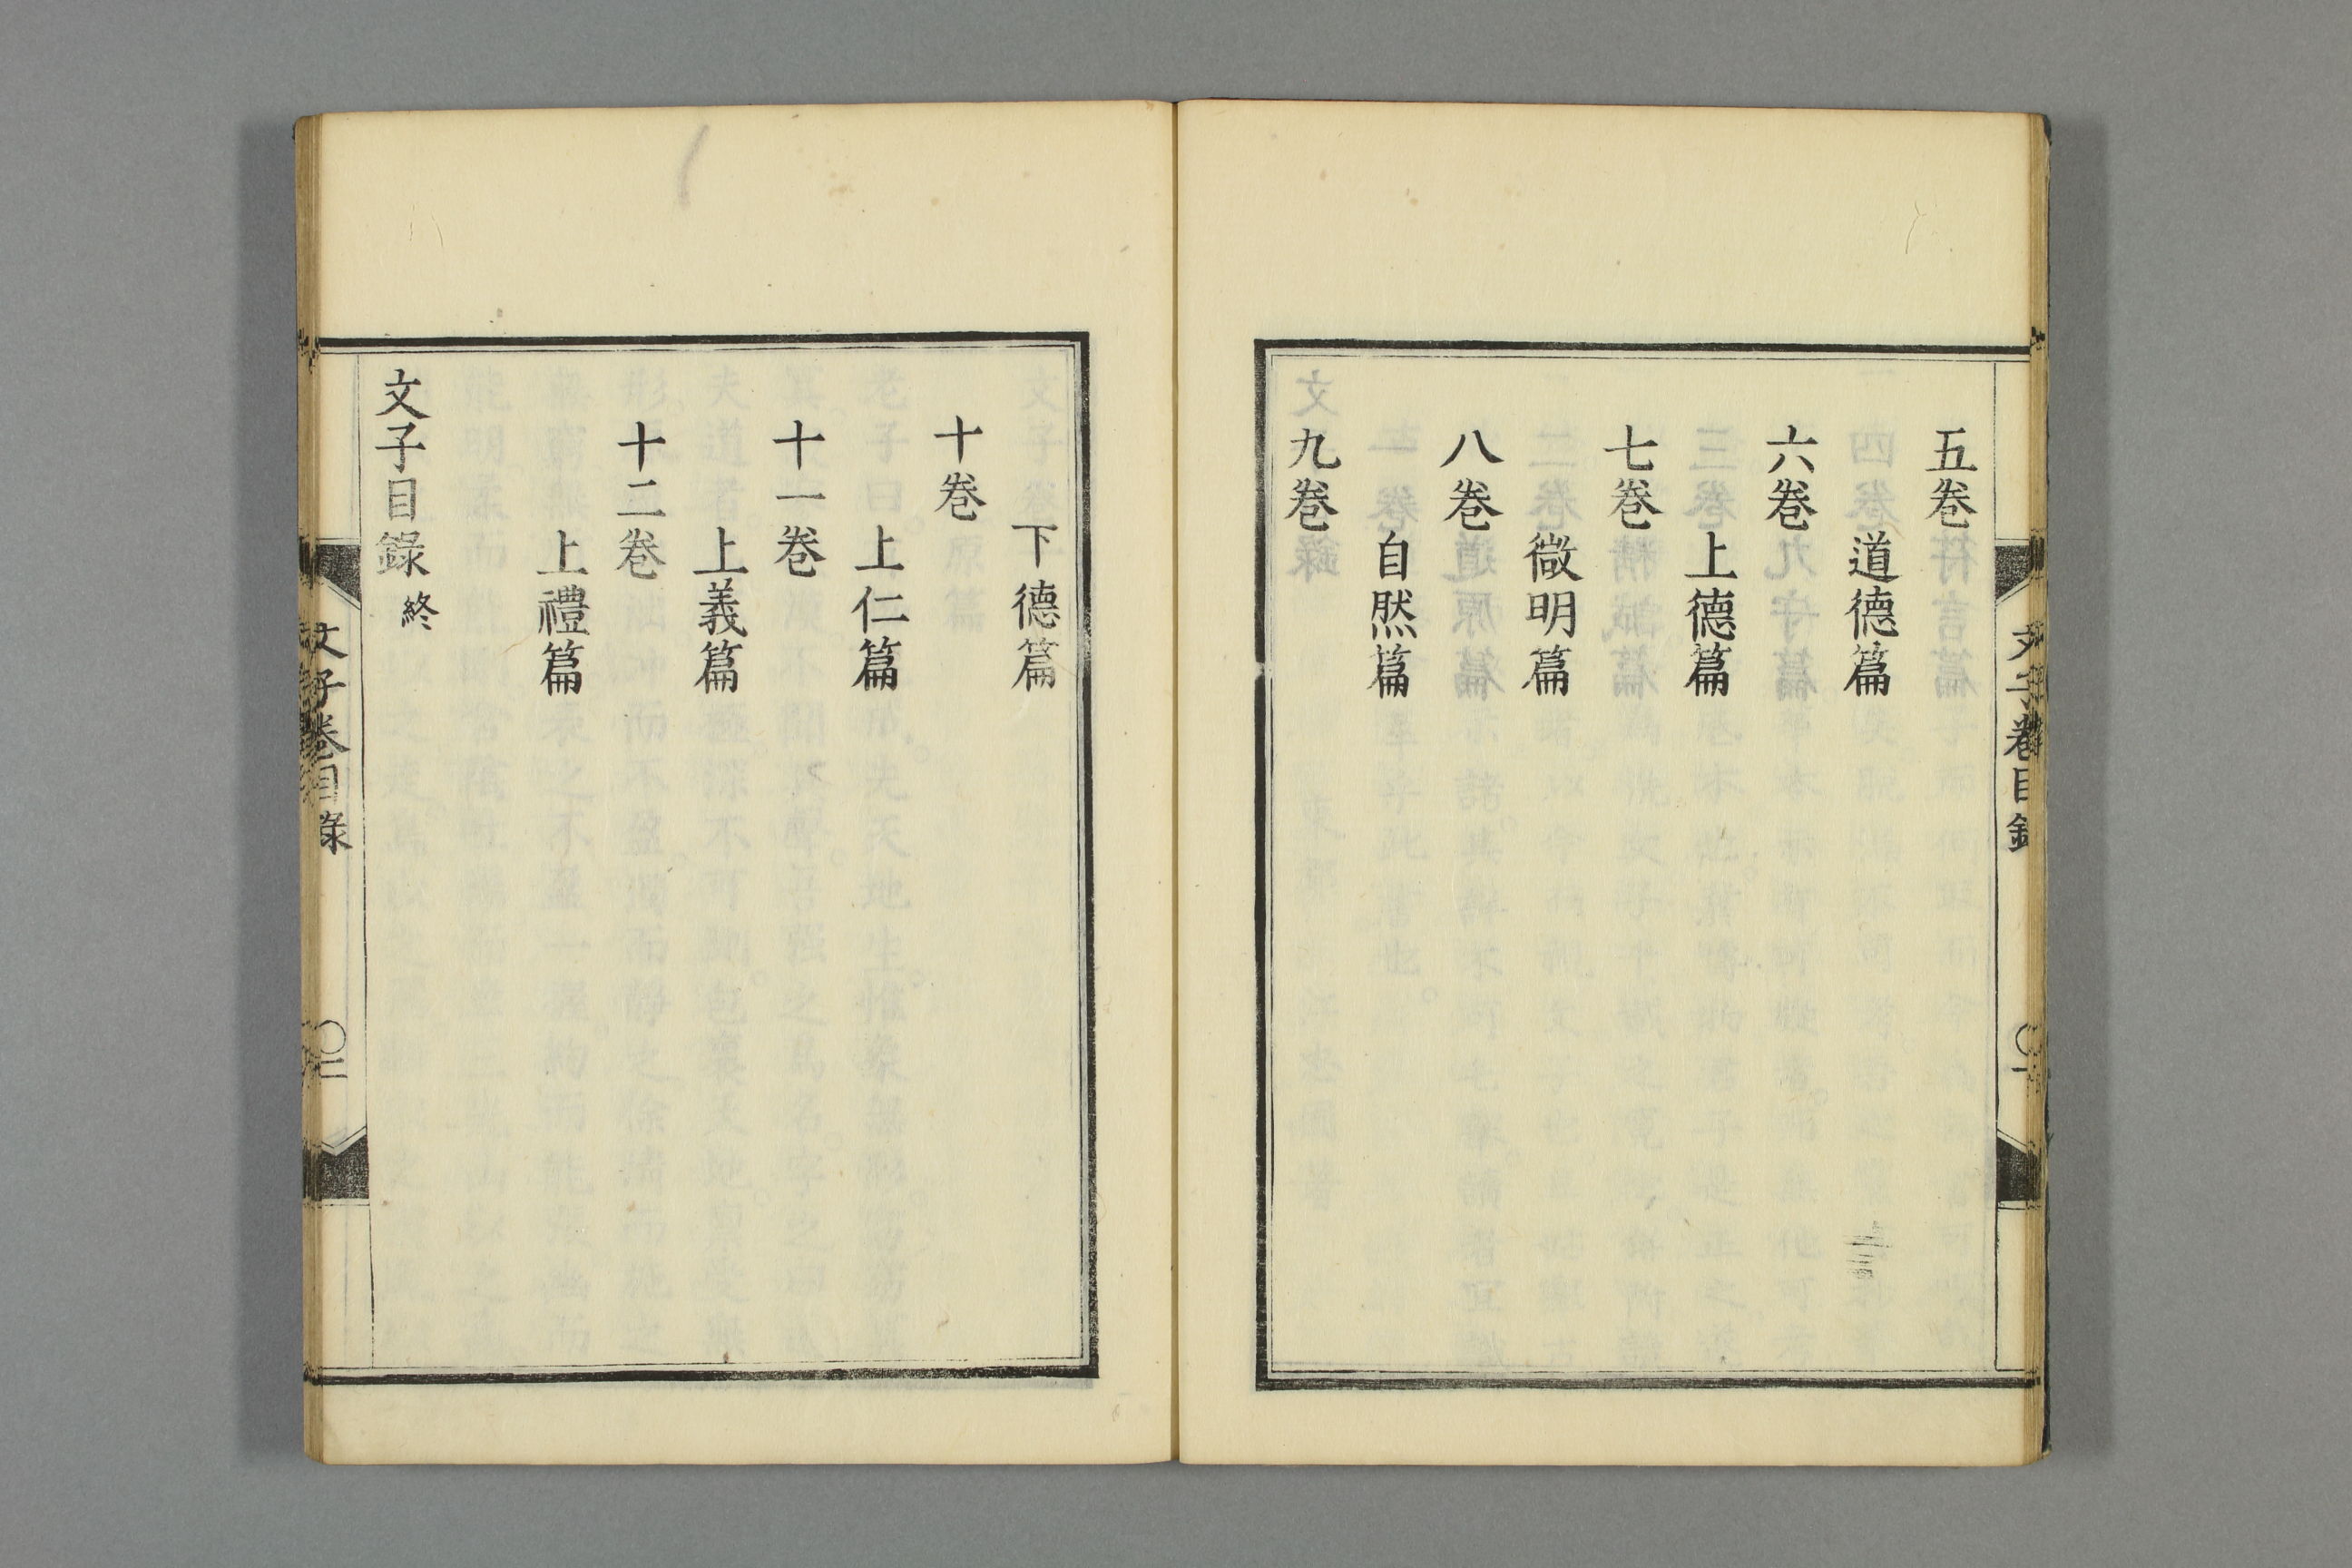 五卷
道德篇
六卷
上德篇
七卷
微明篇
八卷
自然篇
九卷
下德篇
十卷
上仁篇
十一卷
上義篇
十二卷
上禮篇
文子目錄終
文子卷目錄
〇一
文子卷目錄
〇二